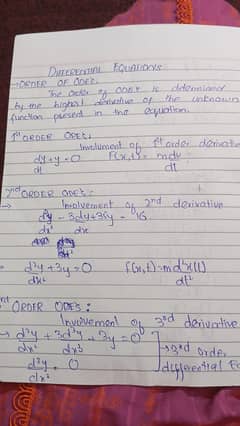 DIFFERENTIAL EQUATIONS
→ ORDER OF ODEs:
The order of ODEs is determined
by the highest derivative of the unknown
function present in the equation.
1st ORDER ODEs:
Involvement of 1st order derivative
dy + y = 0 F(x,t) = mdv
dt dt
2nd ORDER ODEs:
→ Involvement of 2nd derivative
d²y - 3dy + 3y =
dx² dx
d²y + 3y = 0 F(x,t) = md²x(t)
dx² dt²
ORDER ODEs:
Involvement of 3rd derivative
→ d³y + 3d³y + 2y = 0
dx² dx³ → 3rd order
d³y = 0 differential
dx³